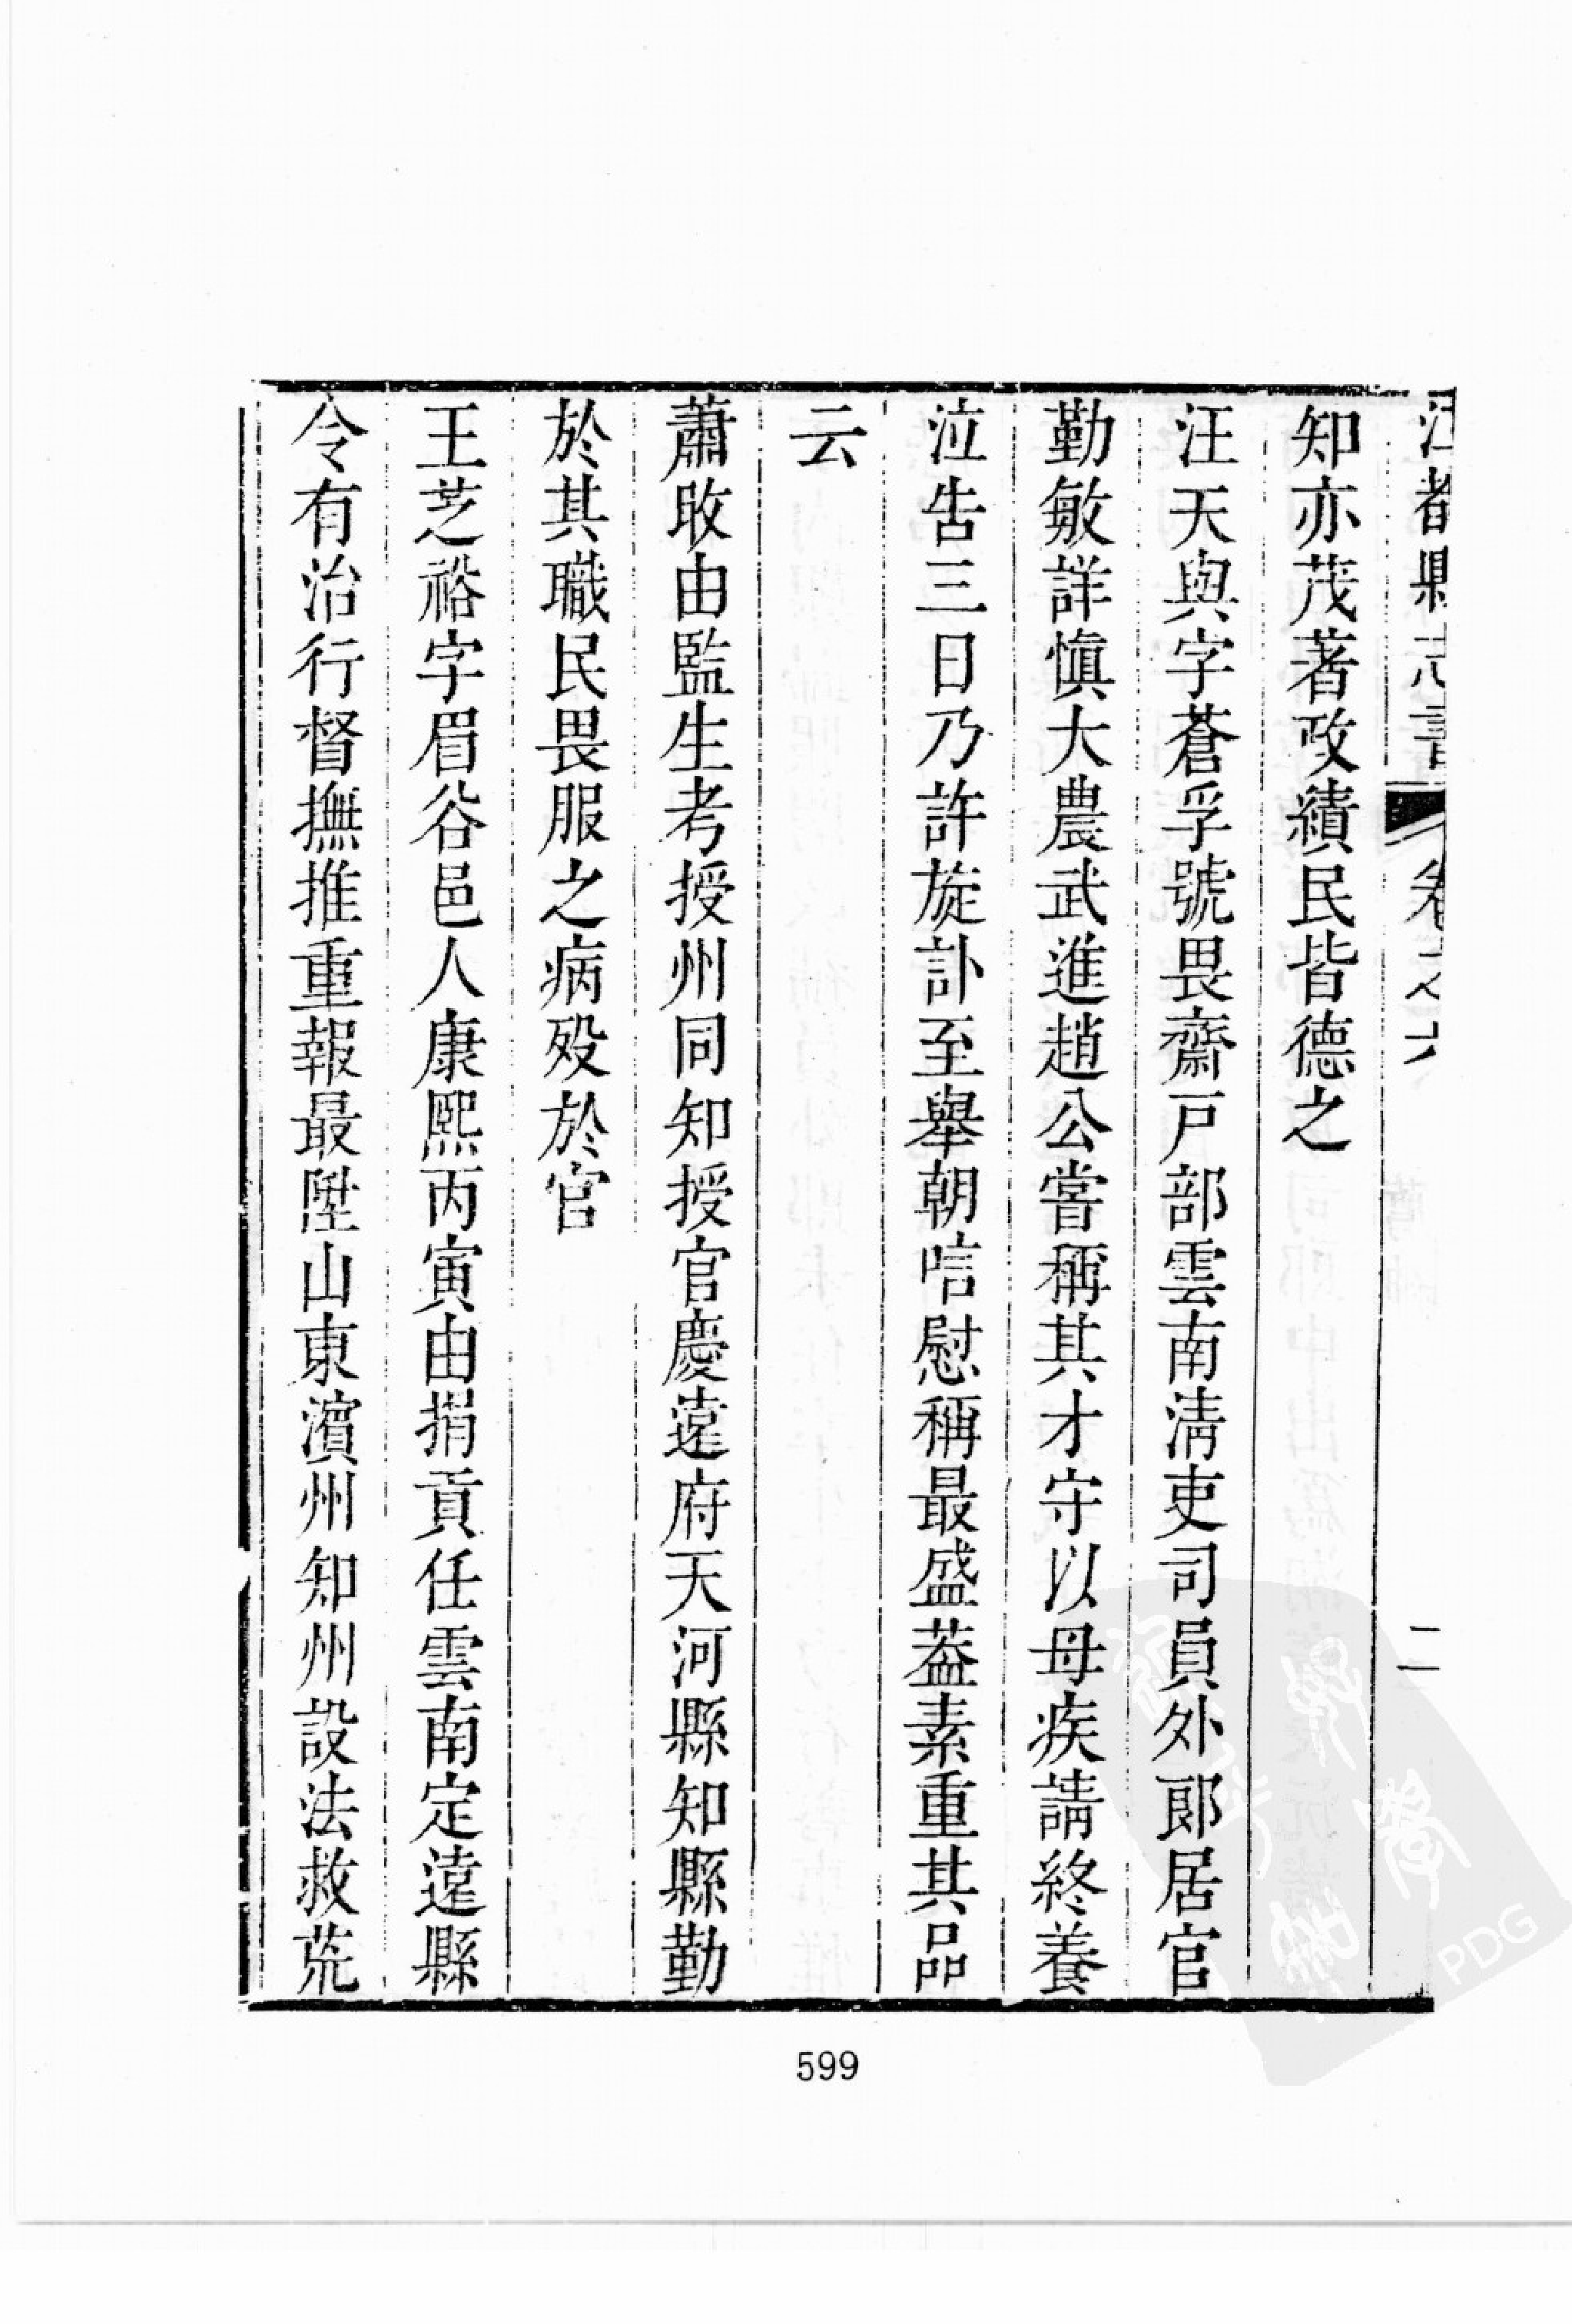 江都縣志書 卷之八 二
知亦茂著政績民皆德之
汪天與字蒼孚號畏齋戸部雲南淸吏司員外郞居官
勤敏詳愼大農武進趙公嘗稱其才守以母疾請終養
泣告三日乃許旋訃至舉朝唁慰稱最盛葢素重其品
云
蕭㪅由監生考授州同知授官慶遠府天河縣知縣勤
於其職民畏服之病殁於官
王芝裕字眉谷邑人康熙丙寅由捐貢任雲南定遠縣
令有治行督撫推重報最陞山東濱州知州設法救荒
599
PDG